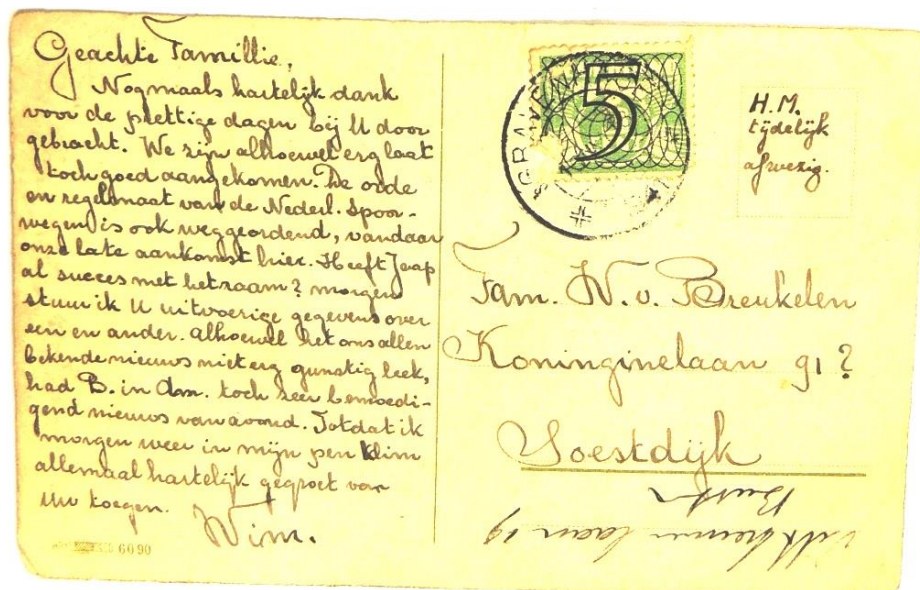 Geachte Famillie,
Nogmaals hartelijk dank
voor de prettige dagen bij U door
gebracht. We zijn alhoewel erg laat
toch goed aangekomen. De orde
en regelmaat van de Nederl. Spoor-
wegen is ook weggeordend, vandaar
onze late aankomst hier. Heeft Jaap
al succes met het raam? morgen
stuur ik U uitvoerige gegevens over
een en ander. Alhoewel het ons allen
bekende nieuws niet erg gunstig leek,
had B. in Am. toch zeer bemoedi-
gend nieuws van avond. Totdat ik
morgen weer in mijn pen klim
allemaal hartelijk gegroet van
Uw toegen.
Wim.
6090
5
H.M.
tijdelijk
afwezig.
Fam. W. v. Breukelen
Koninginelaan 91?
Soestdijk
laan 19